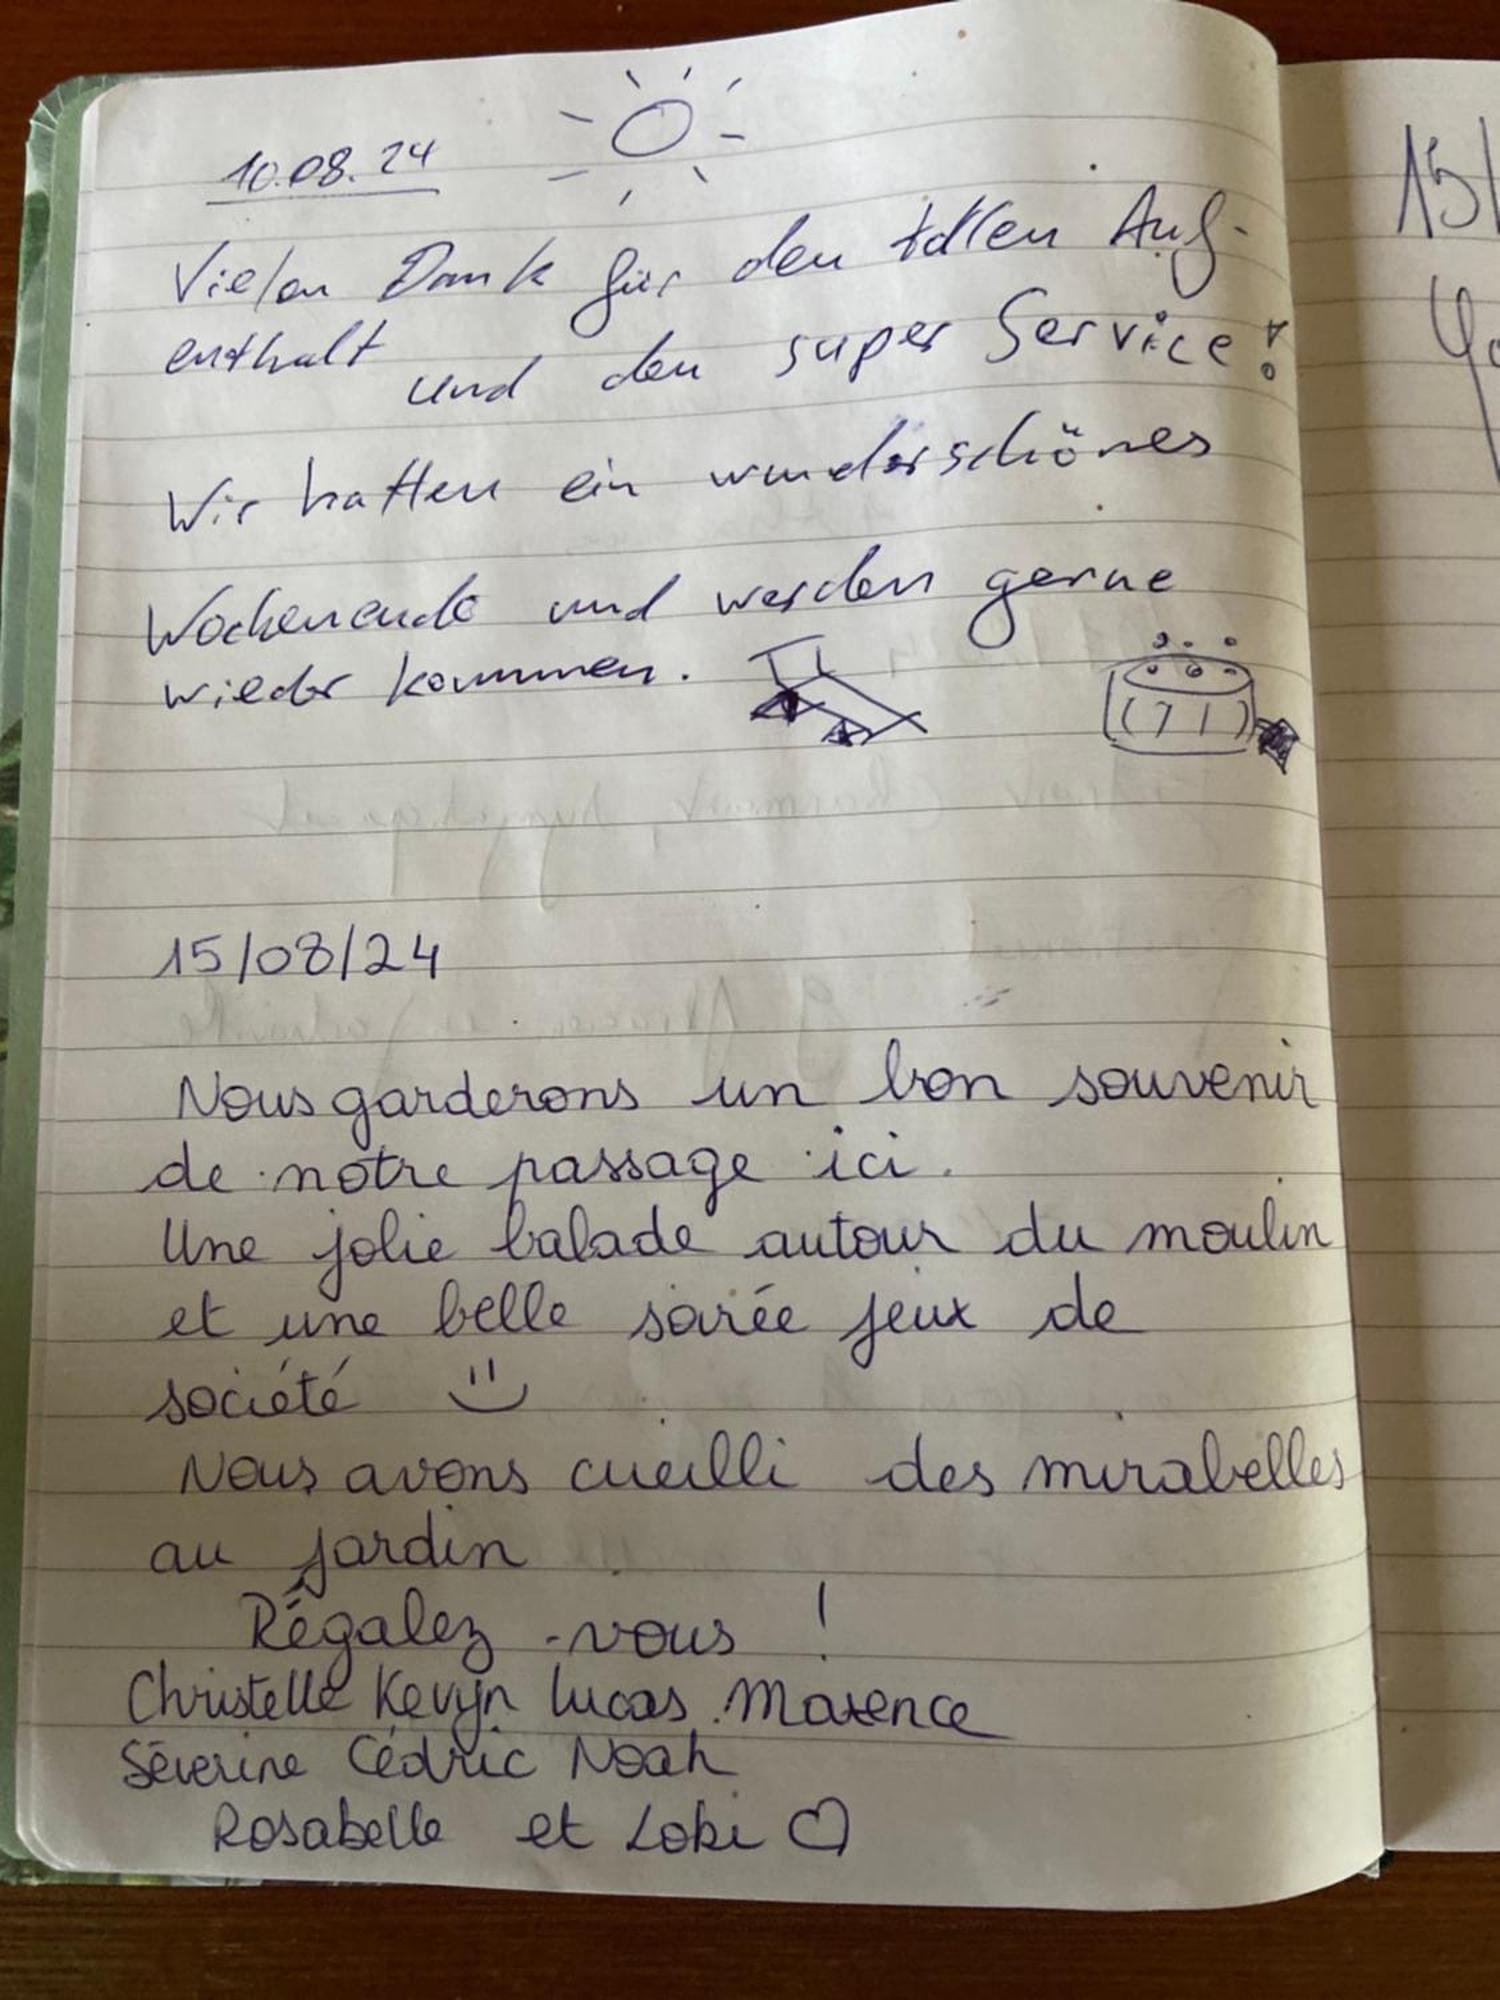 10.08.24
Vielen Dank für den tollen Auf-
enthalt und den super Service!
Wir hatten ein wunderschönes
Wochenende und werden gerne
wieder kommen.
15/08/24
Nous garderons un bon souvenir
de notre passage ici.
Une jolie balade autour du moulin
et une belle soirée jeux de
société
Nous avons cueilli des mirabelles
au jardin
Régalez-vous !
Christelle Kevyn Lucas Maxence
Séverine Cédric Noah
Rosabelle et Loki
15/